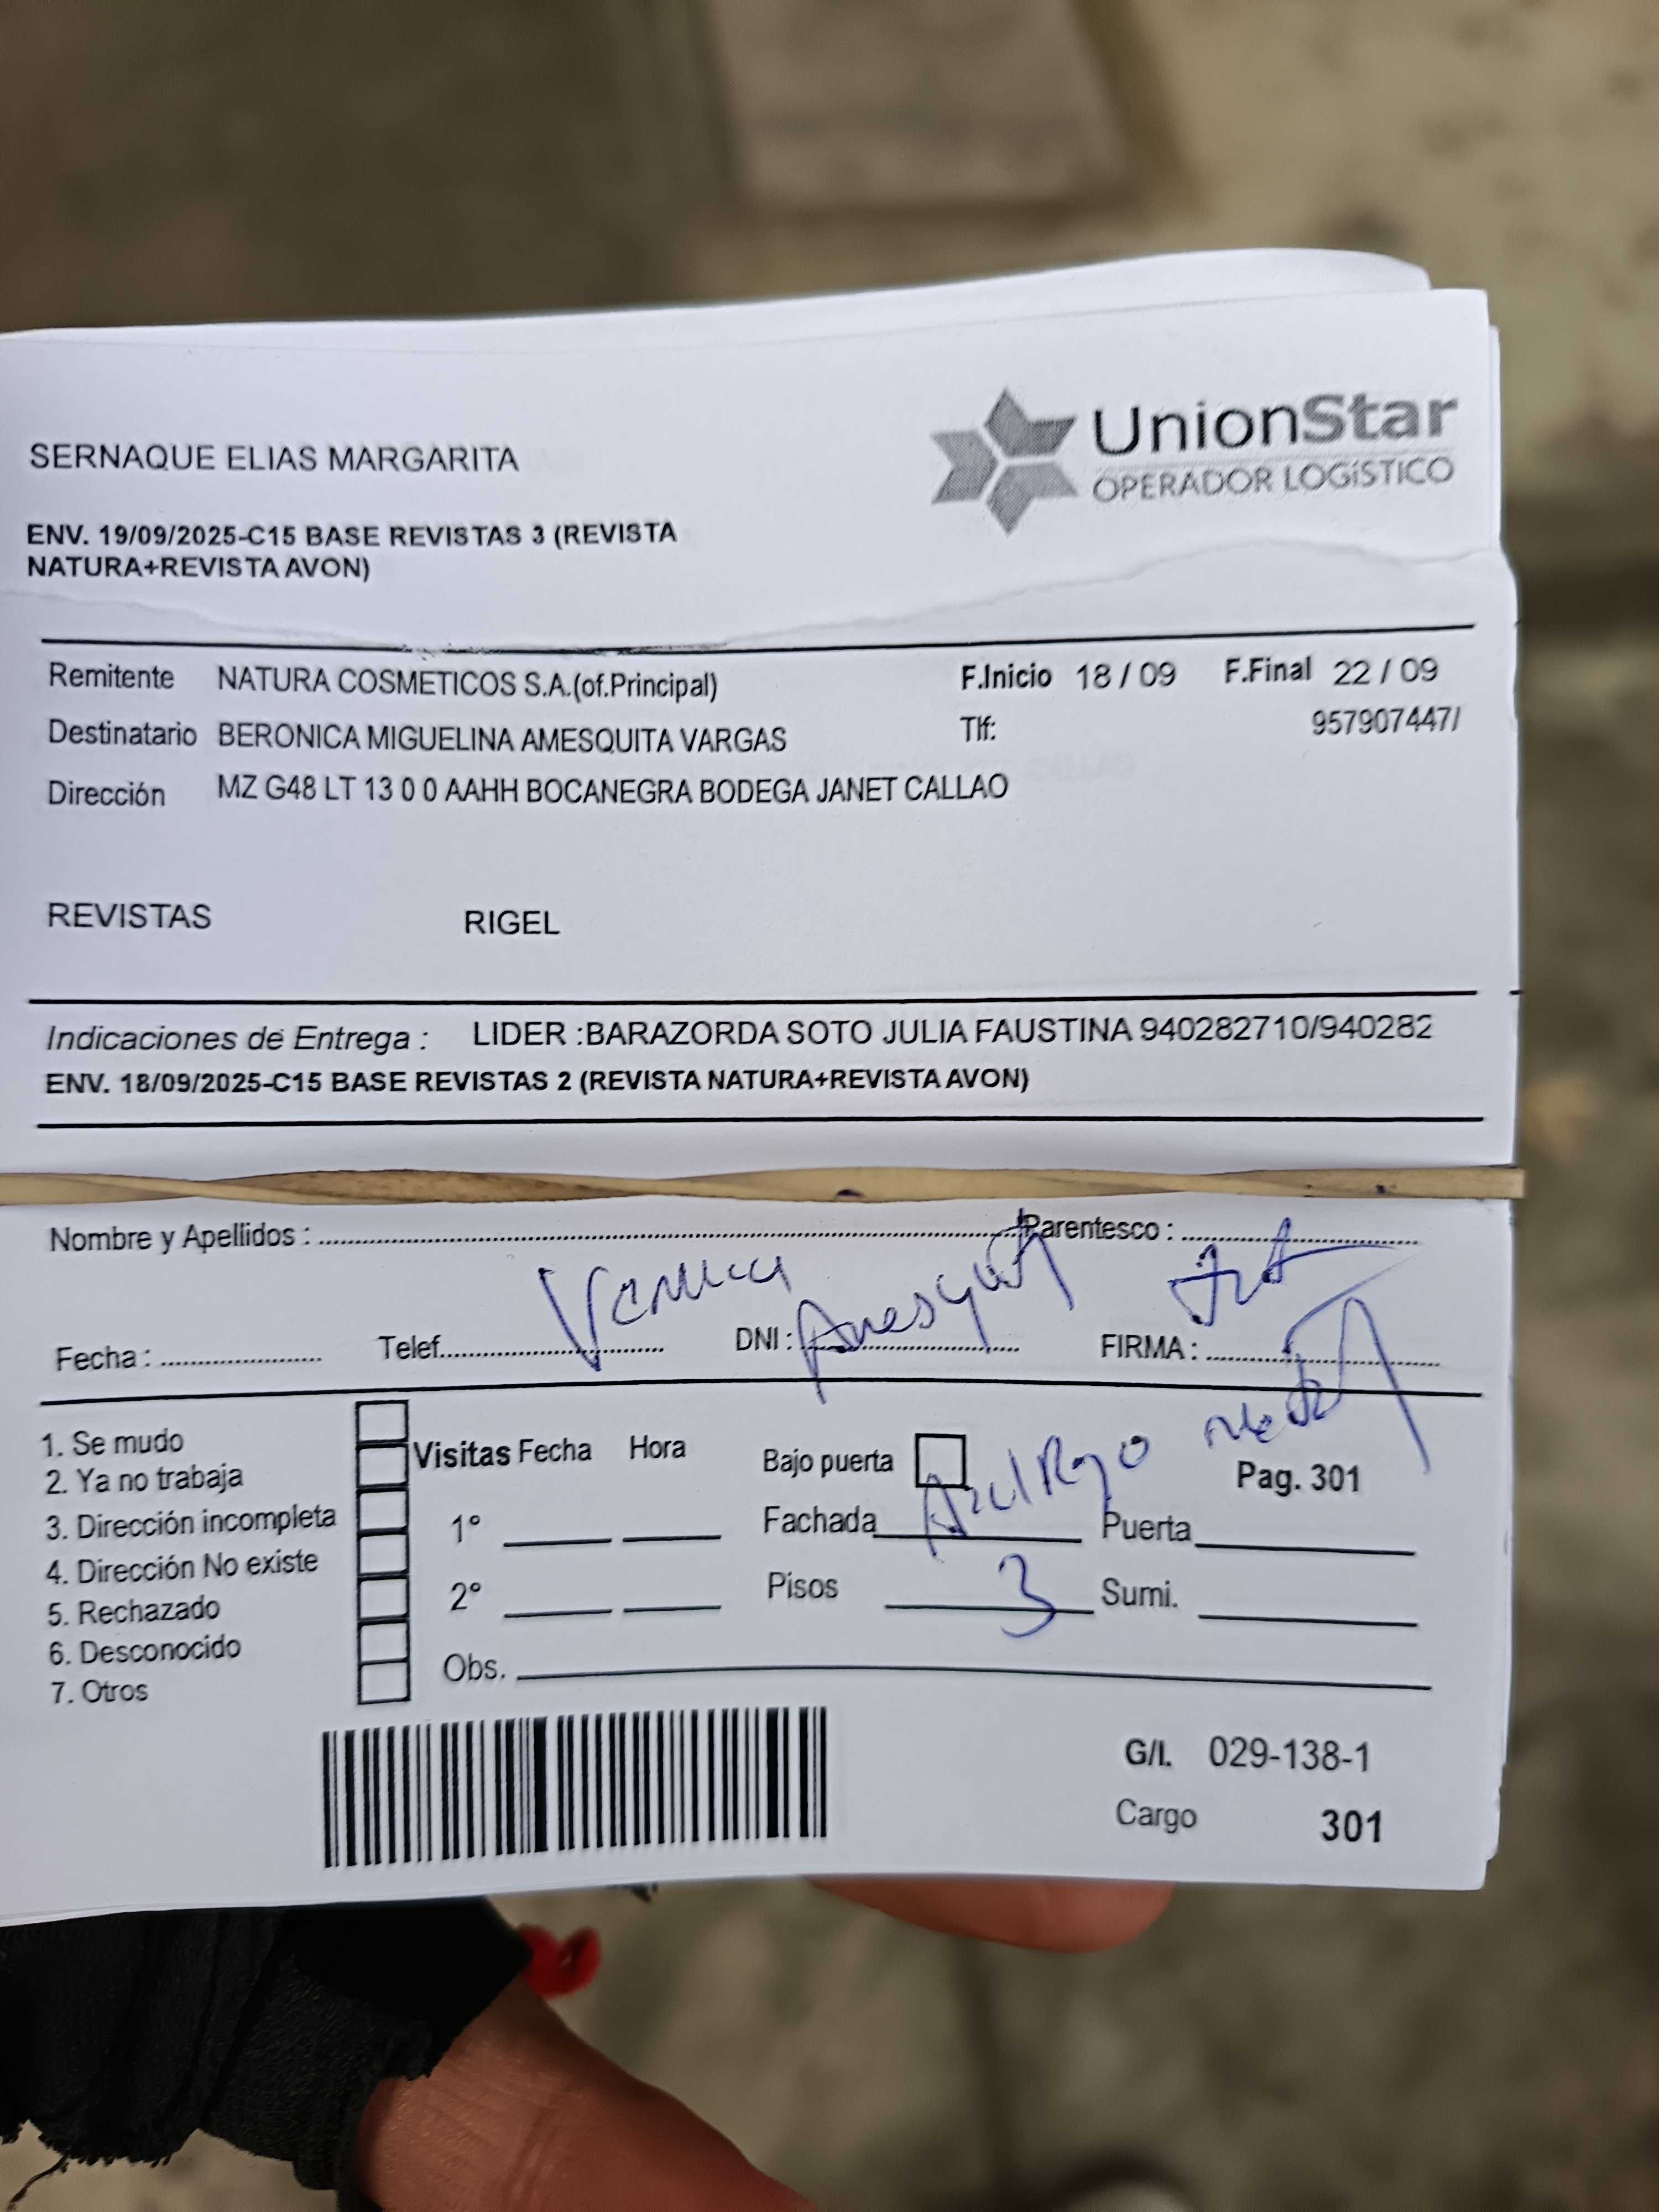 UnionStar
OPERADOR LOGíSTICO
SERNAQUE ELIAS MARGARITA
ENV. 19/09/2025-C15 BASE REVISTAS 3 (REVISTA
NATURA+REVISTA AVON)
Remitente NATURA COSMETICOS S.A.(of.Principal) F.Inicio 18 / 09 F.Final 22 / 09
Destinatario BERONICA MIGUELINA AMESQUITA VARGAS Tlf: 957907447/
Dirección MZ G48 LT 13 0 0 AAHH BOCANEGRA BODEGA JANET CALLAO
REVISTAS RIGEL
Indicaciones de Entrega : LIDER :BARAZORDA SOTO JULIA FAUSTINA 940282710/940282
ENV. 18/09/2025-C15 BASE REVISTAS 2 (REVISTA NATURA+REVISTA AVON)
Nombre y Apellidos : Parentesco :
Fecha : Telef. DNI : FIRMA :
1. Se mudo
2. Ya no trabaja
3. Dirección incompleta
4. Dirección No existe
5. Rechazado
6. Desconocido
7. Otros
Visitas Fecha Hora
1°
2°
Obs.
Bajo puerta Pag. 301
Fachada Azul Rojo Puerta
Pisos 3 Sumi.
G/I. 029-138-1
Cargo 301